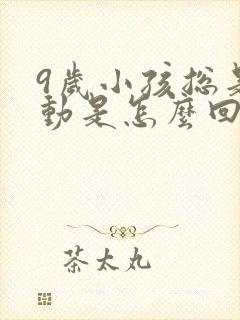 9歲小孩總是
動是怎麼回
茶太丸